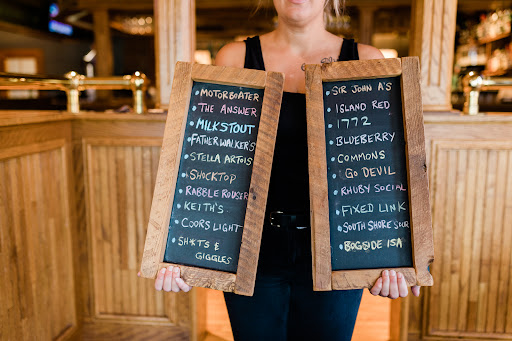 MOTORBOATER
THE ANSWER
MILKSTOUT
FATHERWALKER'S
STELLA ARTOIS
SHOCKTOP
RABBLE ROUSER
KEITH'S
COORS LIGHT
SH*TS &
GIGGLES
SIR JOHN A'S
ISLAND RED
1772
BLUEBERRY
COMMONS
GO DEVIL
RHUBY SOCIAL
FIXED LINK
SOUTH SHORE SOUR
BOGSIDE ISA